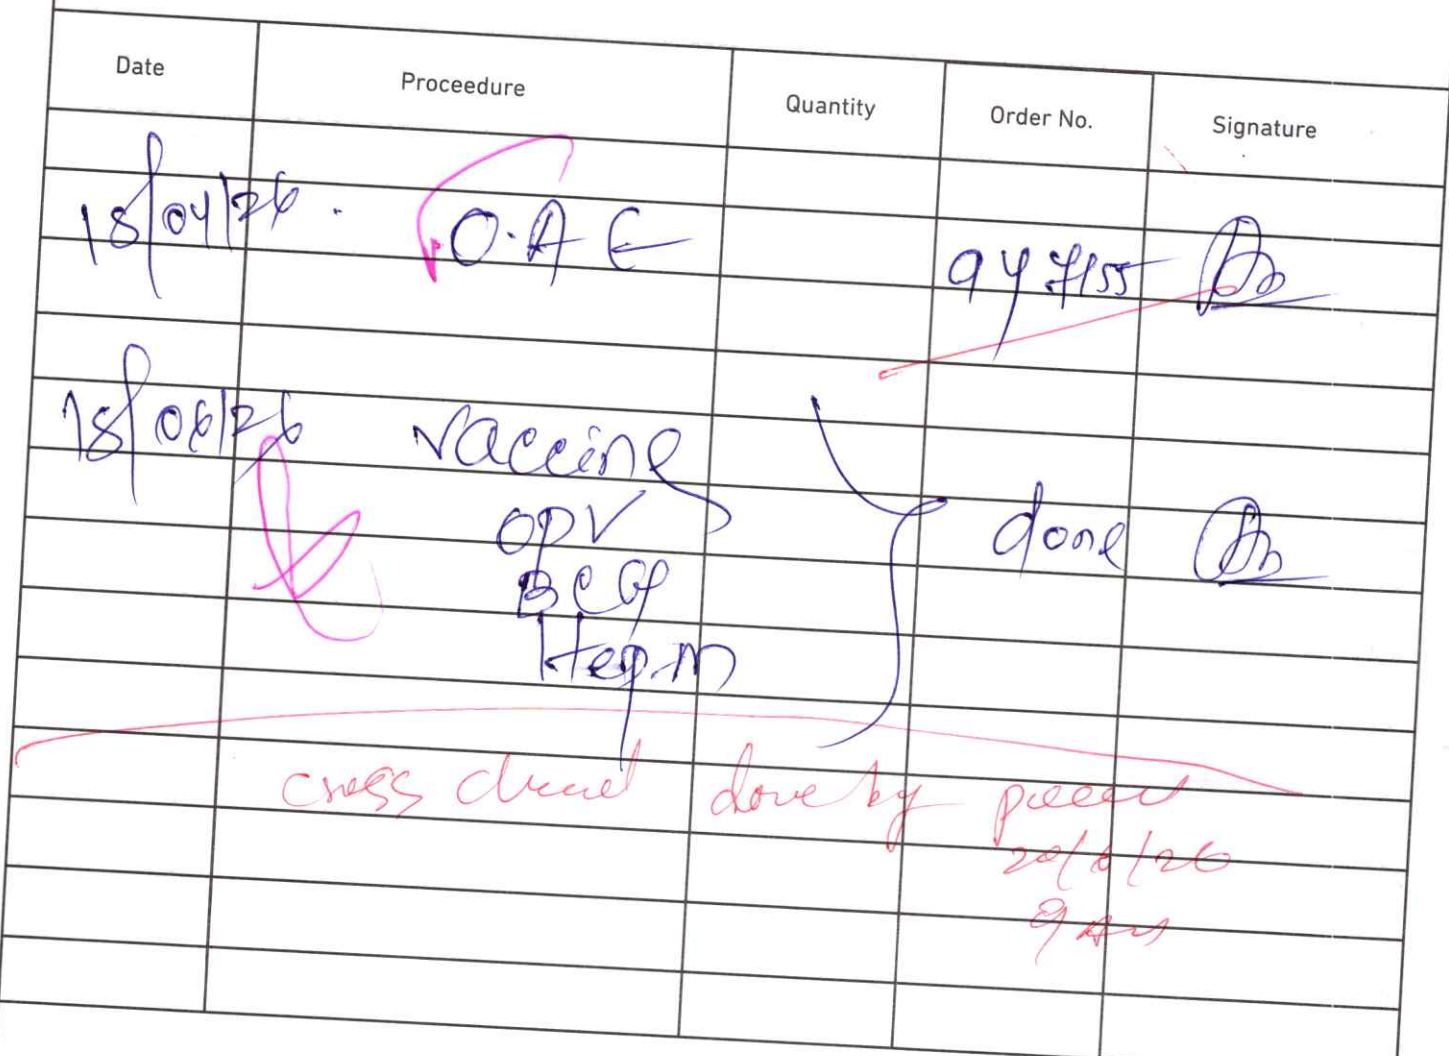 Date Proceedure Quantity Order No. Signature
18/04/26 O.A.E 947155
18/06/26 vaccine
OPV done
BCG
Hep.
cross done by
20/6/26
9 AM